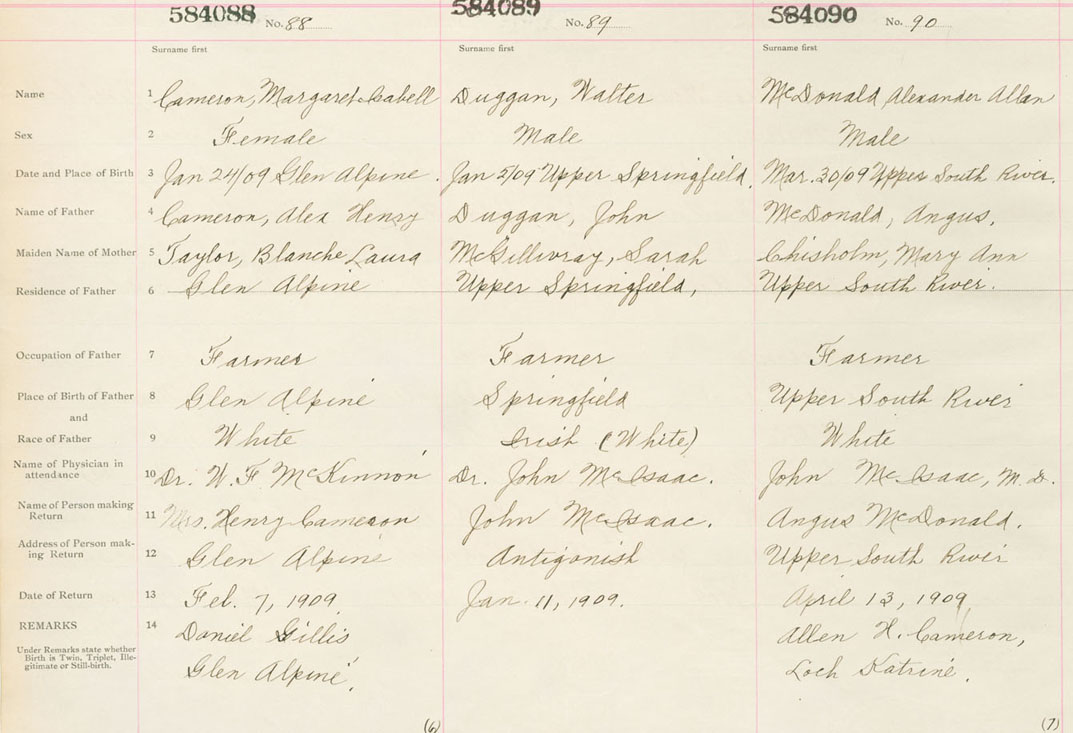 584088 No. 88 584089 No. 89 584090 No. 90
Surname first Surname first Surname first
Name 1 Cameron, Margaret Isabell Duggan, Walter McDonald Alexander Allan
Sex 2 Female Male Male
Date and Place of Birth 3 Jan 24/09 Glen Alpine. Jan 5/09 Upper Springfield. Mar. 30/09 Upper South River.
Name of Father 4 Cameron, Alex Henry Duggan, John McDonald, Angus.
Maiden Name of Mother 5 Taylor, Blanche Laura McGillivray, Sarah Chisholm, Mary Ann
Residence of Father 6 Glen Alpine Upper Springfield, Upper South River.
Occupation of Father 7 Farmer Farmer Farmer
Place of Birth of Father 8 Glen Alpine Springfield Upper South River
and
Race of Father 9 White Irish (White) White
Name of Physician in
attendance 10 Dr. W. F. McKinnon Dr. John McIsaac. John McIsaac, M.D.
Name of Person making
Return 11 Mrs. Henry Cameron John McIsaac. Angus McDonald.
Address of Person mak-
ing Return 12 Glen Alpine Antigonish Upper South River
Date of Return 13 Feb. 7, 1909 Jan. 11, 1909. April 13, 1909
REMARKS 14 Daniel Gillis Allen H. Cameron,
Under Remarks state whether
Birth is Twin, Triplet, Ille-
gitimate or Still-birth. Glen Alpine. Loch Katrine.
(6) (7)